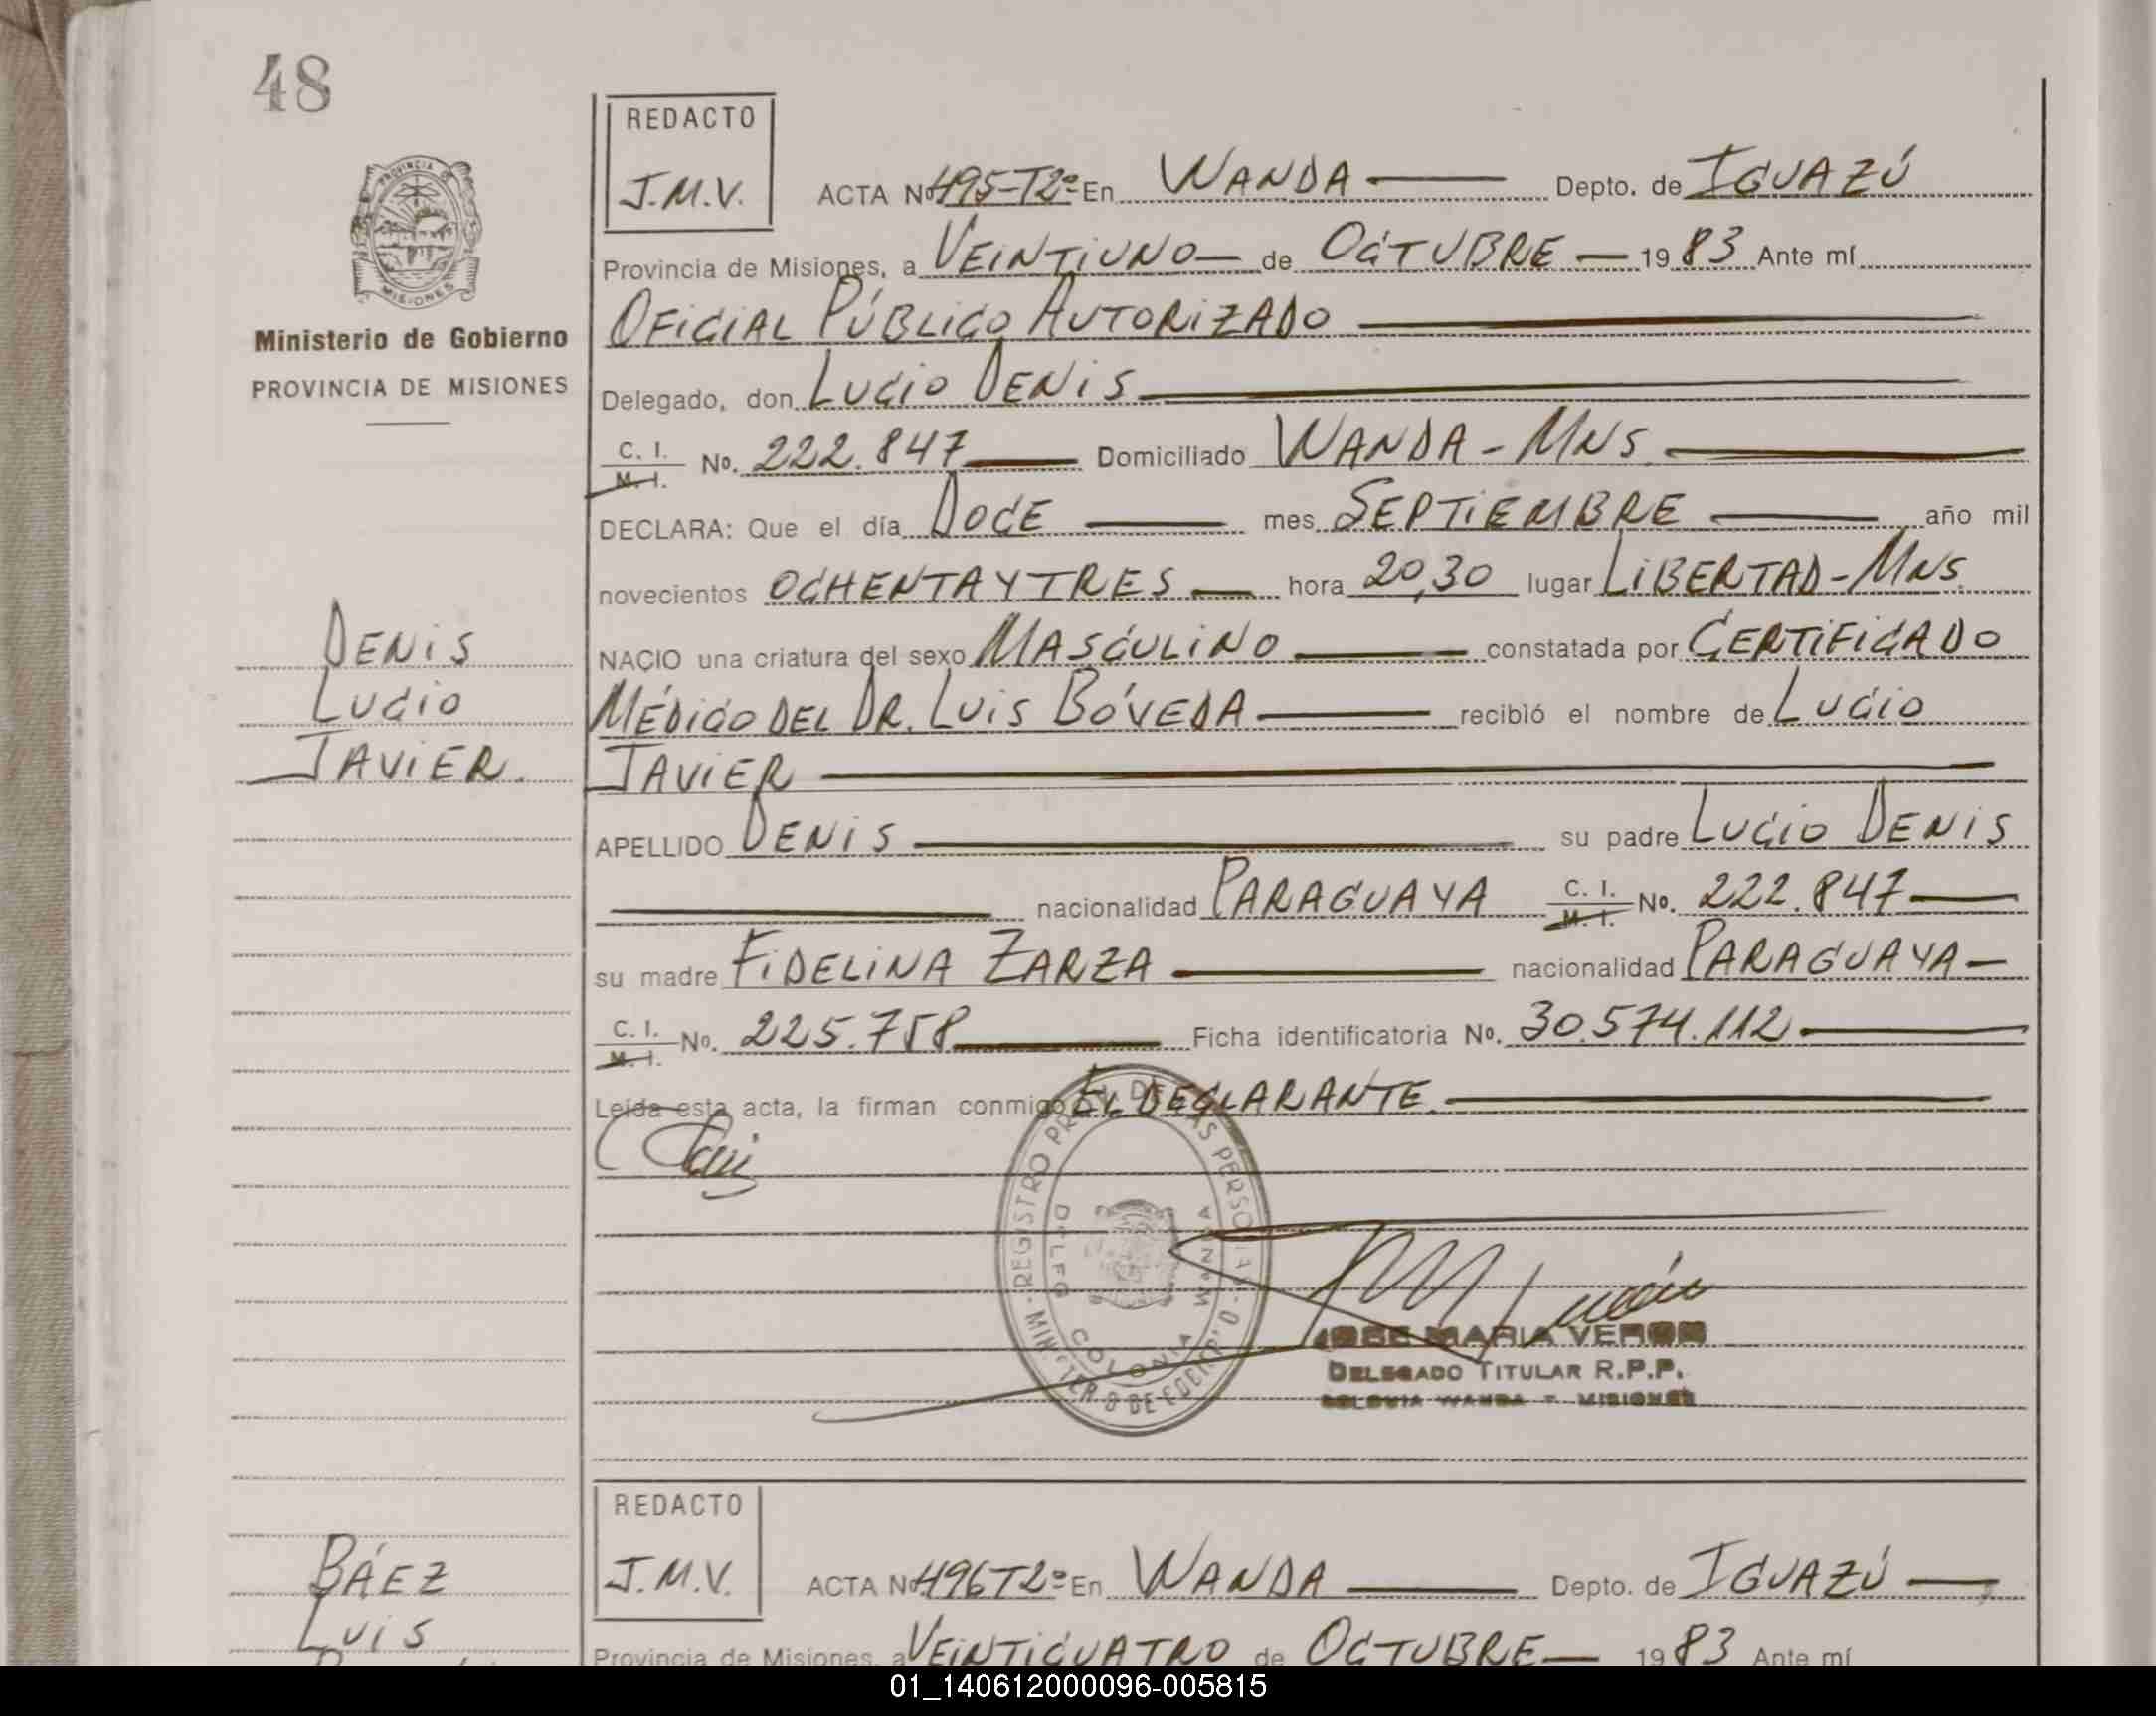 48
REDACTO
J.M.V.
PROVINCIA
MISIONES
Ministerio de Gobierno
PROVINCIA DE MISIONES
ACTA Nº 495-T2º En WANDA Depto. de IGUAZÚ
Provincia de Misiones, a VEINTIUNO de OCTUBRE 1983 Ante mí
OFICIAL PÚBLICO AUTORIZADO
Delegado, don LUCIO DENIS
C. I. M. I. No. 222.847 Domiciliado WANDA-MNS
DECLARA: Que el día DOCE mes SEPTIEMBRE año mil
novecientos OCHENTA Y TRES hora 20,30 lugar LIBERTAD-MNS.
DENIS
NACIO una criatura del sexo MASCULINO constatada por CERTIFICADO
LUCIO
MÉDICO DEL DR. LUIS BÓVEDA recibió el nombre de LUCIO
JAVIER.
JAVIER
APELLIDO DENIS su padre LUCIO DENIS
nacionalidad PARAGUAYA C. I. M. I. No. 222.847
su madre FIDELINA ZARZA nacionalidad PARAGUAYA
C. I. M. I. No. 225.758 Ficha identificatoria No. 30.574.112
Leída esta acta, la firman conmigo EL DECLARANTE.
REGISTRO PERSONAS
COLONIA WANDA
JOSE MARIA VERON
DELEGADO TITULAR R.P.P.
COLONIA WANDA - MISIONES
REDACTO
J.M.V.
BÁEZ
ACTA Nº 496 T2º En WANDA Depto. de IGUAZÚ
LUIS
Provincia de Misiones, a VEINTICUATRO de OCTUBRE 1983 Ante mí
01_140612000096-005815